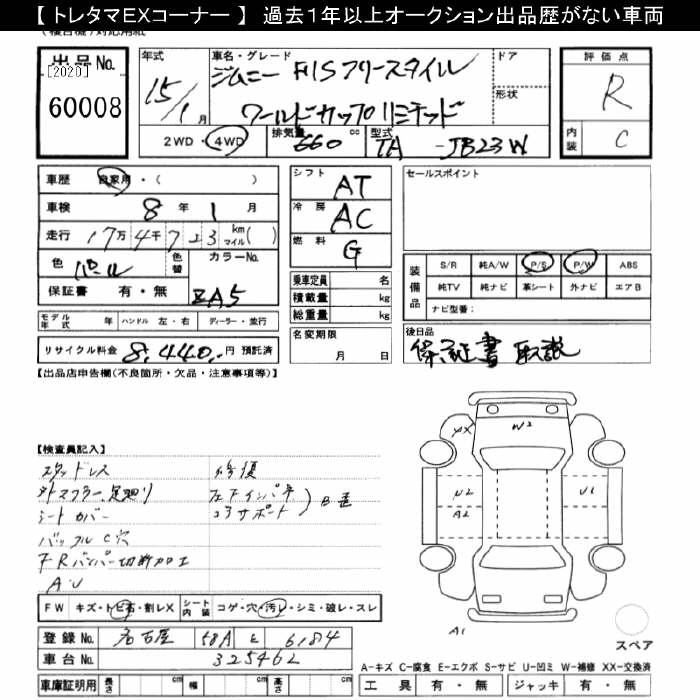 【 トレタマEXコーナー 】 過去1年以上オークション出品歴がない車両
出品No.
[2020]
60008
年式
15/1月
車名・グレード
ジムニー FISフリースタイル
ワールドカップリミテッド
ドア
形状
評価点
R
内装 C
2WD・4WD
排気量 660 cc
型式 TA -JB23W
車歴 自家用・( )
車検 8年 1月
走行 17万4千723 kmマイル( )
色 パール
色替
カラーNo.
ZA5
保証書 有・無
モデル年式 年 ハンドル 左・右 ディーラー・並行
リサイクル料金 8,440 円 預託済
シフト AT
冷房 AC
燃料 G
乗車定員 名
積載量 kg
総重量 kg
名変期限
月 日
セールスポイント
装備品
S/R 純A/W P/S P/W ABS
純TV 純ナビ 革シート 外ナビ エアB
ナビ型番:
後日品
保証書 取説
【出品店申告欄(不良箇所・欠品・注意事項等)】
【検査員記入】
スタッドレス
外マフラー、足廻り
シートカバー
バックルC穴
FRバンパー切断加工
A・U
修復
コアサポート
B歪
AX
W2
U2
A2
U1
A1
スペア
FW キズ・トビ石・割レX
シート内装 コゲ・穴・汚レ・シミ・破レ・スレ
登録No. 名古屋 58A と 6184
車台No. 325462
車庫証明用 長さ cm 幅 cm 高さ cm
A-キズ C-腐食 E-エクボ S-サビ U-凹ミ W-補修 XX-交換済
工具 有・無 ジャッキ 有・無